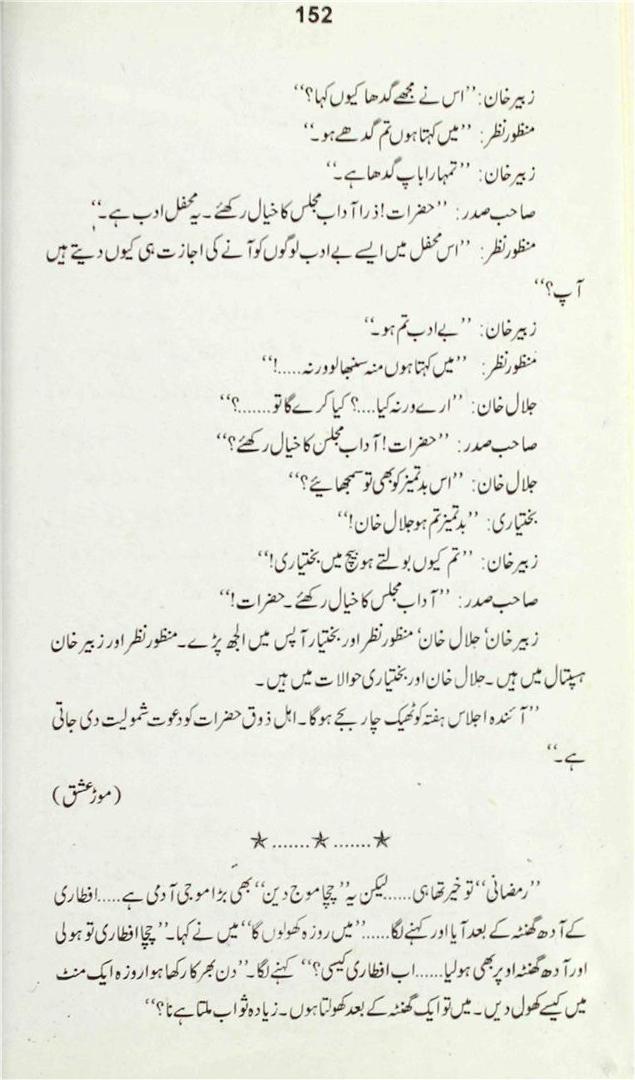 152
زبیر خان: ’’اس نے مجھے گدھا کیوں کہا؟‘‘
منظور نظر: ’’میں کہتا ہوں تم گدھے ہو۔‘‘
زبیر خان: ’’تمہارا باپ گدھا ہے۔‘‘
صاحب صدر: ’’حضرات! ذرا آداب مجلس کا خیال رکھئے۔ یہ محفل ادب ہے۔‘‘
منظور نظر: ’’اس محفل میں ایسے بے ادب لوگوں کو آنے کی اجازت ہی کیوں دیتے ہیں
آپ؟‘‘
زبیر خان: ’’بے ادب تم ہو۔‘‘
منظور نظر: ’’میں کہتا ہوں منہ سنبھالو ورنہ.....!‘‘
جلال خان: ’’ارے ورنہ کیا....؟ کیا کرے گا تو.......؟‘‘
صاحب صدر: ’’حضرات! آداب مجلس کا خیال رکھئے؟‘‘
جلال خان: ’’اس بدتمیز کو بھی تو سمجھائیے؟‘‘
بختیاری: ’’بدتمیز تم ہو جلال خان!‘‘
زبیر خان: ’’تم کیوں بولتے ہو بیچ میں بختیاری!‘‘
صاحب صدر: ’’آداب مجلس کا خیال رکھئے۔ حضرات!‘‘
زبیر خان‘ جلال خان‘ منظور نظر اور بختیار آپس میں الجھ پڑے۔ منظور نظر اور زبیر خان
ہسپتال میں ہیں۔ جلال خان اور بختیاری حوالات میں ہیں۔
’’آئندہ اجلاس ہفتہ کو ٹھیک چار بجے ہوگا۔ اہل ذوق حضرات کو دعوت شمولیت دی جاتی
ہے۔‘‘
(موڑ عشق)
★.......★.......★
’’رمضانی‘‘ تو خیر تھا ہی......لیکن یہ ’’چچا موج دین‘‘ بھی بڑا موجی آدمی ہے.....افطاری
کے آدھ گھنٹہ کے بعد آیا اور کہنے لگا......’’میں روزہ کھولوں گا‘‘ میں نے کہا۔ ’’چچا افطاری تو ہولی
اور آدھ گھنٹہ اوپر بھی ہولیا......اب افطاری کیسی؟‘‘ کہنے لگا۔ ’’دن بھر کا رکھا ہوا روزہ ایک منٹ
میں کیسے کھول دیں۔ میں تو ایک گھنٹہ کے بعد کھولتا ہوں۔ زیادہ ثواب ملتا ہے نا؟‘‘